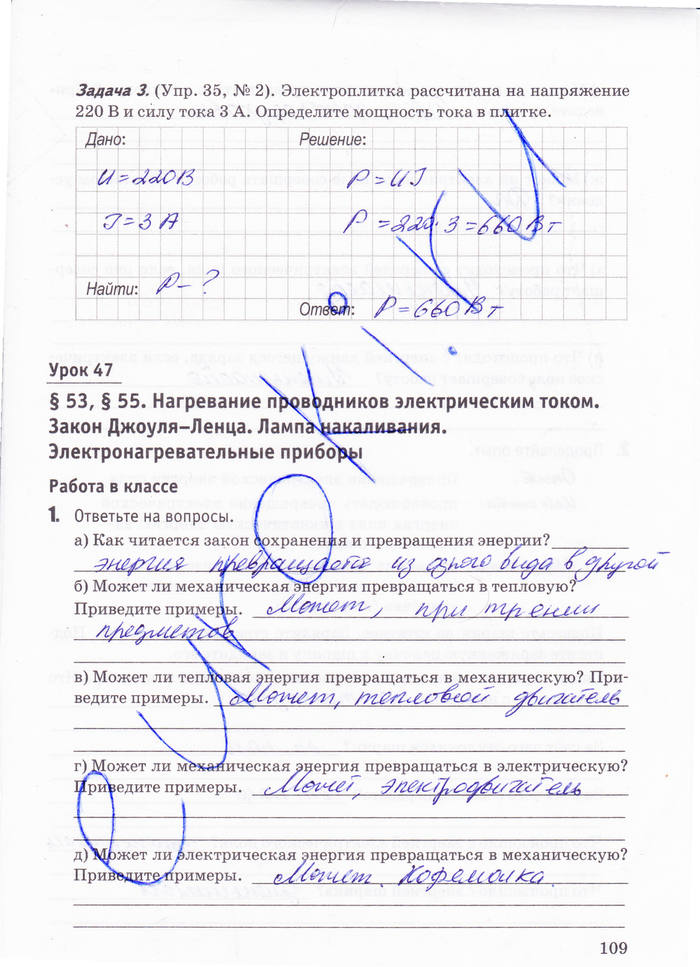 Задача 3. (Упр. 35, № 2). Электроплитка рассчитана на напряжение
220 В и силу тока 3 А. Определите мощность тока в плитке.
Дано: Решение:
U = 220 В P = UI
I = 3 А P = 220 · 3 = 660 Вт
Найти: P - ?
Ответ: P = 660 Вт
Урок 47
§ 53, § 55. Нагревание проводников электрическим током.
Закон Джоуля–Ленца. Лампа накаливания.
Электронагревательные приборы
Работа в классе
1. Ответьте на вопросы.
а) Как читается закон сохранения и превращения энергии?
энергия превращается из одного вида в другой
б) Может ли механическая энергия превращаться в тепловую?
Приведите примеры. Может, при трении
предметов
в) Может ли тепловая энергия превращаться в механическую? При-
ведите примеры. Может, тепловой двигатель
г) Может ли механическая энергия превращаться в электрическую?
Приведите примеры. Может, электродвигатель
д) Может ли электрическая энергия превращаться в механическую?
Приведите примеры. Может. Кофемолка.
109